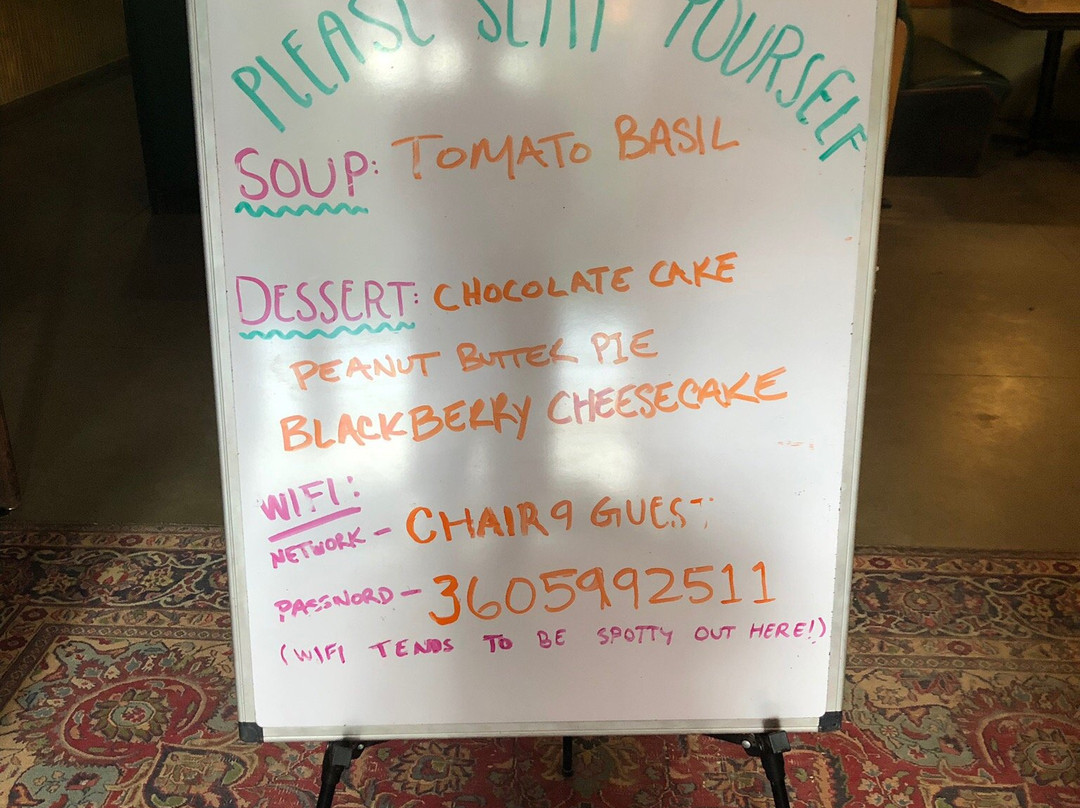 PLEASE SEAT YOURSELF
SOUP: TOMATO BASIL
DESSERT: CHOCOLATE CAKE
PEANUT BUTTER PIE
BLACKBERRY CHEESECAKE
WIFI:
NETWORK - CHAIR 9 GUEST
PASSWORD - 3605992511
(WIFI TENDS TO BE SPOTTY OUT HERE!)